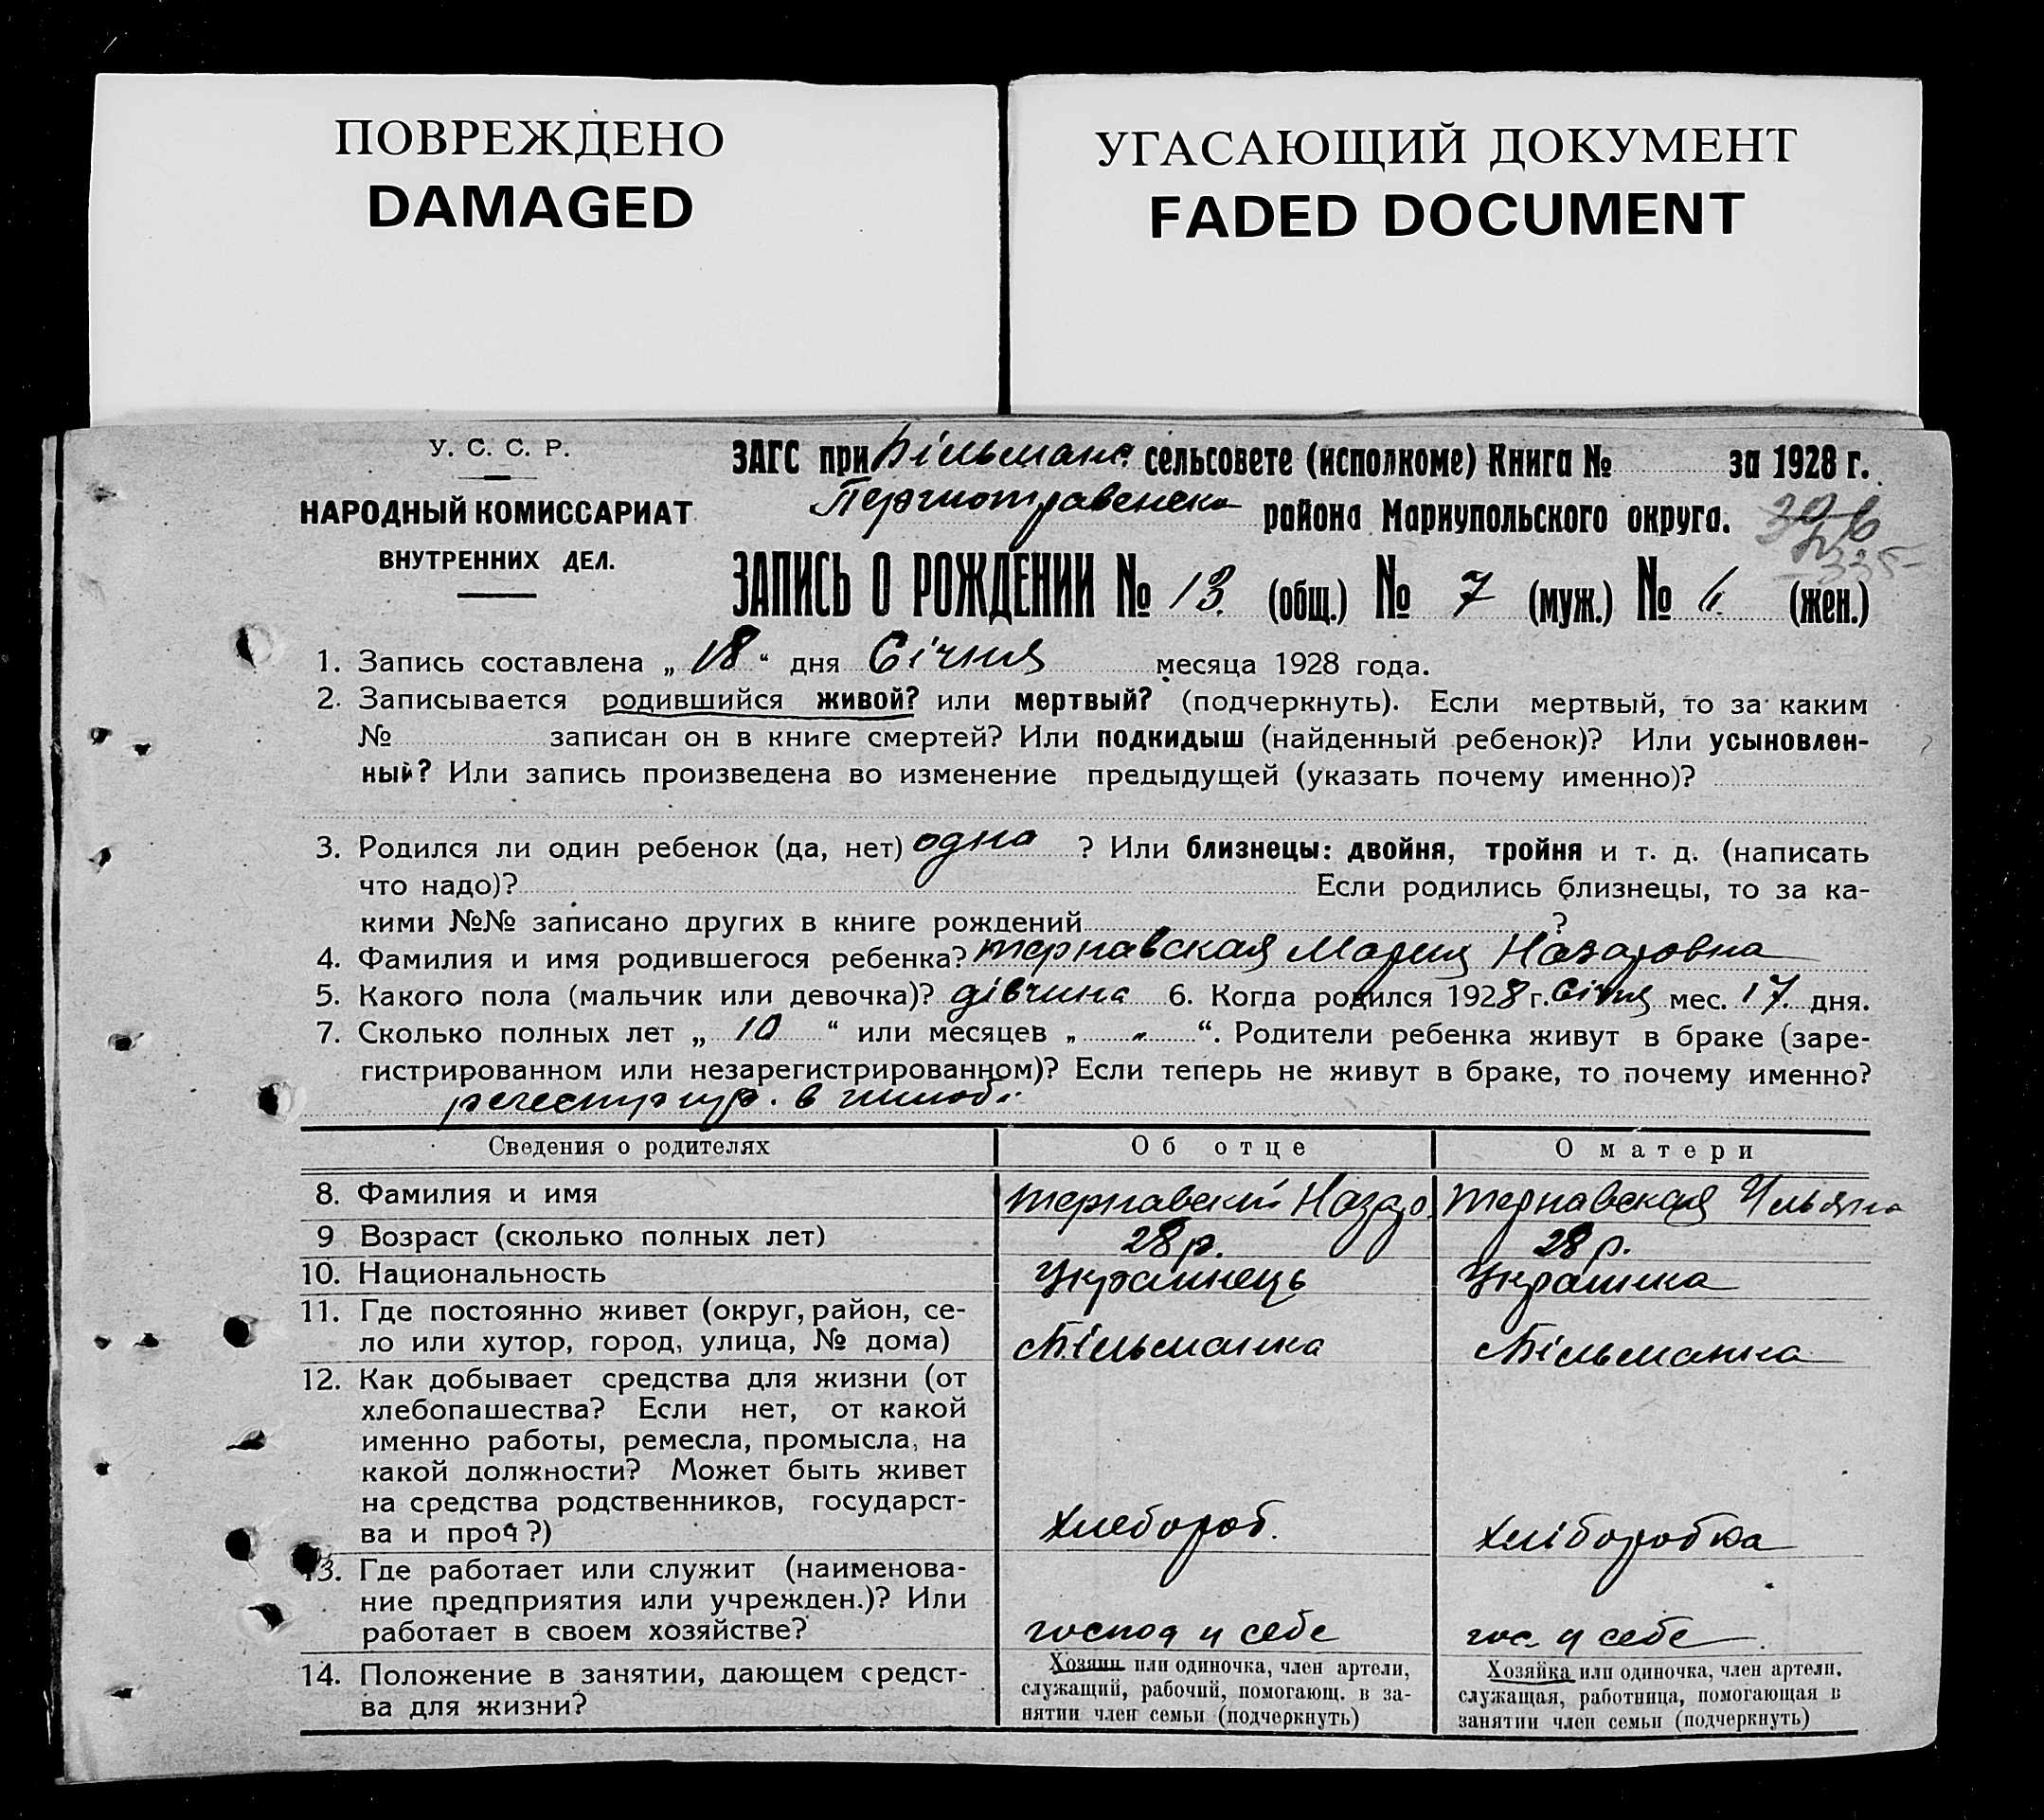 ПОВРЕЖДЕНО
DAMAGED
УГАСАЮЩИЙ ДОКУМЕНТ
FADED DOCUMENT
У. С. С. Р.
НАРОДНЫЙ КОМИССАРИАТ
ВНУТРЕННИХ ДЕЛ.
ЗАГС при Більманс. сельсовете (исполкоме) Книга № за 1928 г.
Першотравенск района Мариупольского округа.
335
ЗАПИСЬ О РОЖДЕНИИ № 13. (общ.) № 7 (муж.) № 6. (жен.)
1. Запись составлена „ 18 “ дня Січня месяца 1928 года.
2. Записывается родившийся живой? или мертвый? (подчеркнуть). Если мертвый, то за каким
№ записан он в книге смертей? Или подкидыш (найденный ребенок)? Или усыновлен-
ный? Или запись произведена во изменение предыдущей (указать почему именно)?
3. Родился ли один ребенок (да, нет) одна ? Или близнецы: двойня, тройня и т. д. (написать
что надо)? Если родились близнецы, то за ка-
кими №№ записано других в книге рождений ?
4. Фамилия и имя родившегося ребенка? Тернавская Мария Назаровна
5. Какого пола (мальчик или девочка)? дівчина 6. Когда родился 1928 г. Січня мес. 17. дня.
7. Сколько полных лет „ 10 “ или месяцев „ „ “. Родители ребенка живут в браке (заре-
гистрированном или незарегистрированном)? Если теперь не живут в браке, то почему именно?
регестрир. в шлюбі
Сведения о родителях Об отце О матери
8. Фамилия и имя Тернавский Назар. Тернавская Ульяна
9 Возраст (сколько полных лет) 28 р. 28 р.
10. Национальность Украинець Украинка
11. Где постоянно живет (округ, район, се-
ло или хутор, город, улица, № дома) Більманка Більманка
12. Как добывает средства для жизни (от
хлебопашества? Если нет, от какой
именно работы, ремесла, промысла, на
какой должности? Может быть живет
на средства родственников, государст-
ва и проч?) Хлебороб. Хліборобка
13. Где работает или служит (наименова-
ние предприятия или учрежден.)? Или
работает в своем хозяйстве? господ у себе гос. у себе
14. Положение в занятии, дающем средст-
ва для жизни?
Хозяин или одиночка, член артели,
служащий, рабочий, помогающ. в за-
нятии член семьи (подчеркнуть)
Хозяйка или одиночка, член артели.
служащая, работница, помогающая в
занятии член семьи (подчеркнуть)